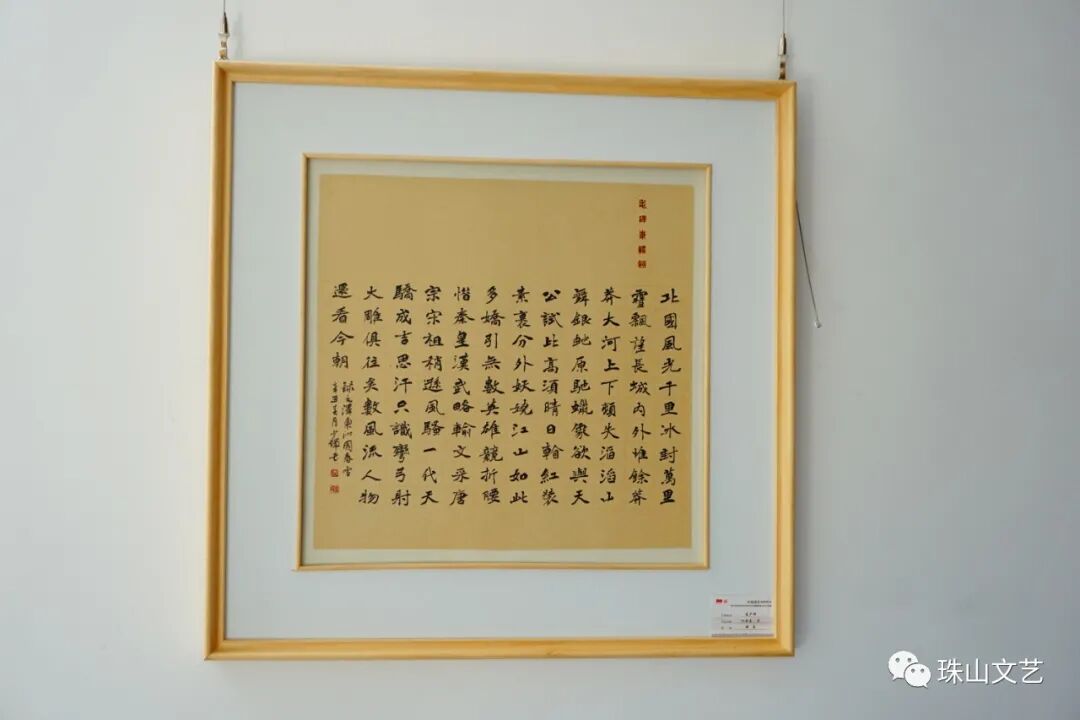 北國風光千里冰封萬里
雪飄望長城內外惟餘莽
莽大河上下頓失滔滔山
舞銀蛇原馳蠟象欲與天
公試比高須晴日看紅裝
素裹分外妖嬈江山如此
多嬌引無數英雄競折腰
惜秦皇漢武略輸文采唐
宗宋祖稍遜風騷一代天
驕成吉思汗只識彎弓射
大雕俱往矣數風流人物
還看今朝
錄毛澤東沁園春雪
辛丑 月少 書
珠山文艺